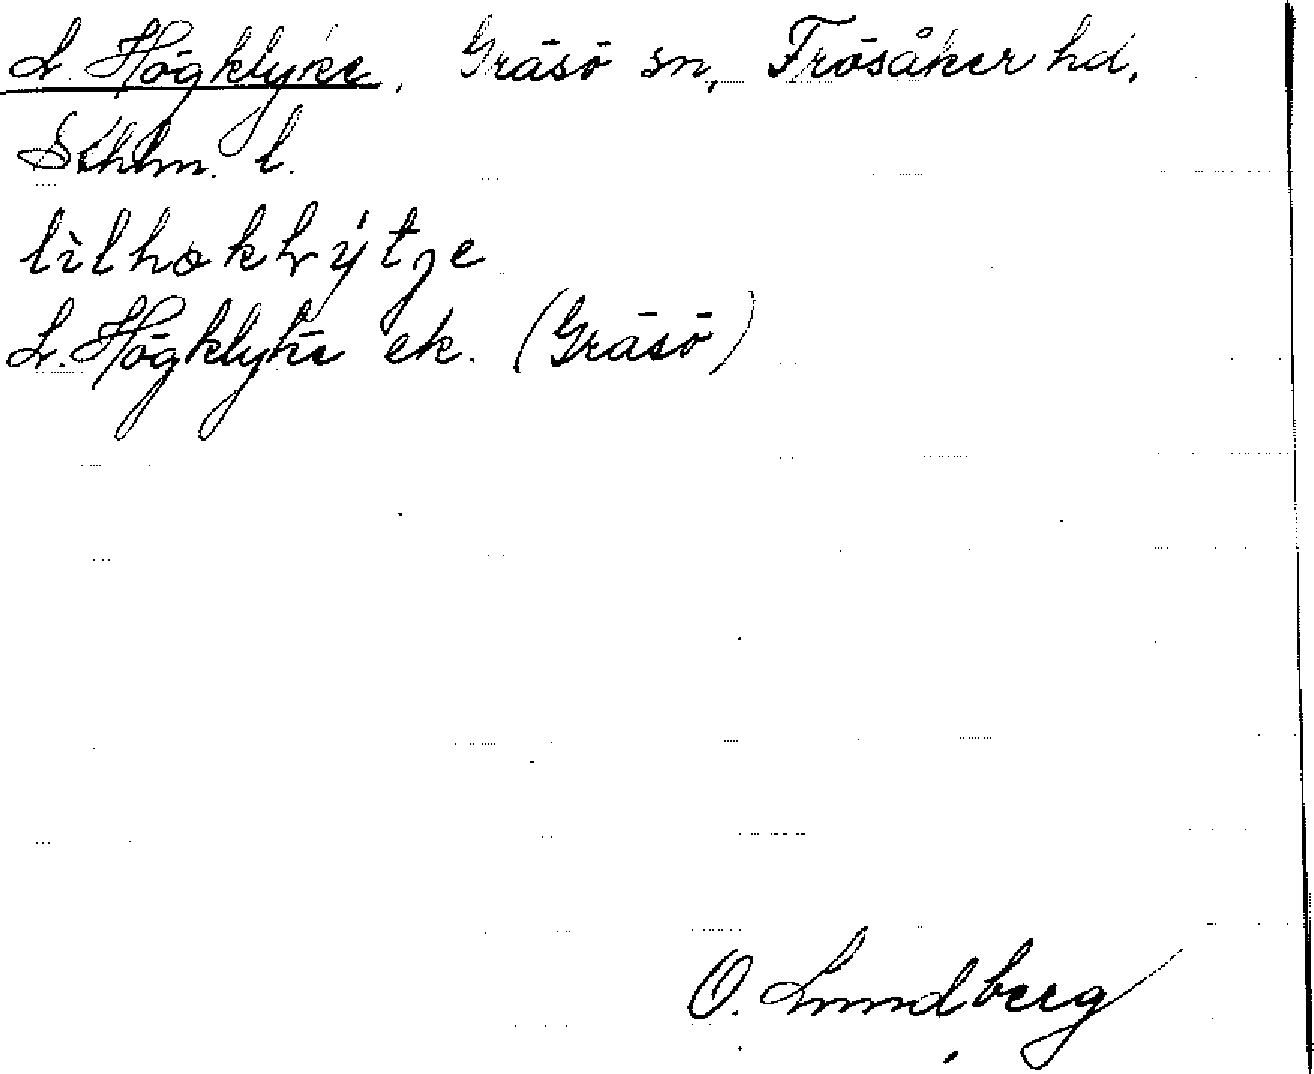 L. Högklyke, Gräsö sn, Frösåker hd,
Sthlm. l.
L. Högklyke ek. (Gräsö)
O. Lundberg